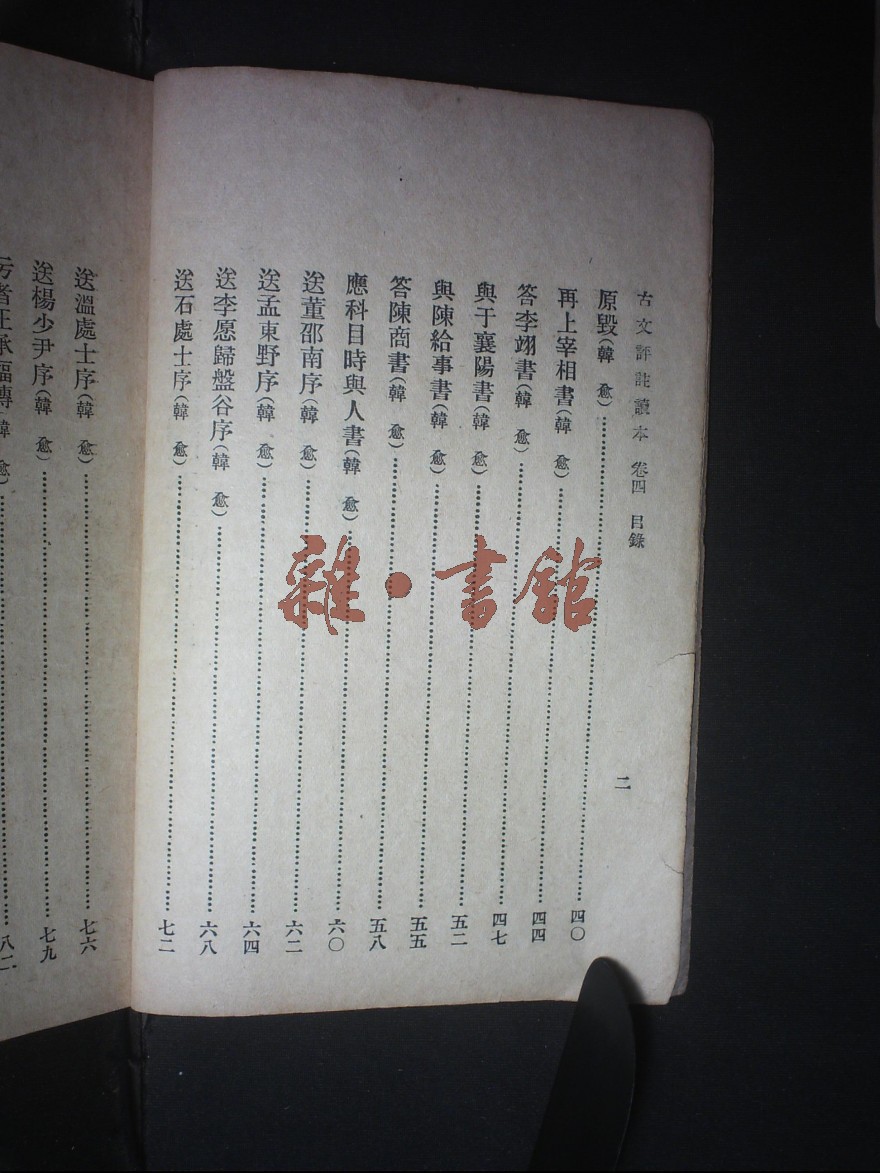 古文評註讀本 卷四 目錄 二
原毀(韓愈)……四〇
再上宰相書(韓愈)……四四
答李翊書(韓愈)……四七
與于襄陽書(韓愈)……五二
與陳給事書(韓愈)……五五
答陳商書(韓愈)……五八
應科目時與人書(韓愈)……六〇
送董邵南序(韓愈)……六二
送孟東野序(韓愈)……六四
送李愿歸盤谷序(韓愈)……六八
送石處士序(韓愈)……七二
送溫處士序(韓愈)……七六
送楊少尹序(韓愈)……七九
圬者王承福傳(韓愈)……八二
雜·書館